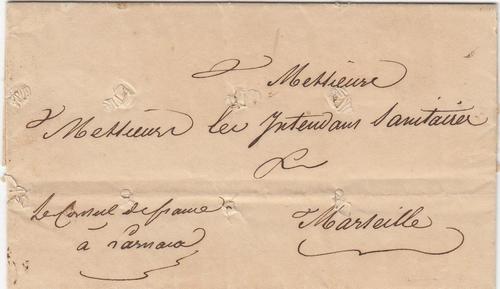 A Messieurs
Messieurs les Intendans Sanitaires
A
Le Consul de france
à Larnaca
Marseille